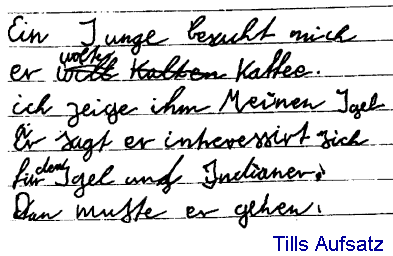 Ein Junge besucht mich
er wollte will Kalten Kaffee.
ich zeige ihm Meinen Igel
Er sagt er intressirt sich
für den Igel und Indianer.
Dan muste er gehen.
Tills Aufsatz